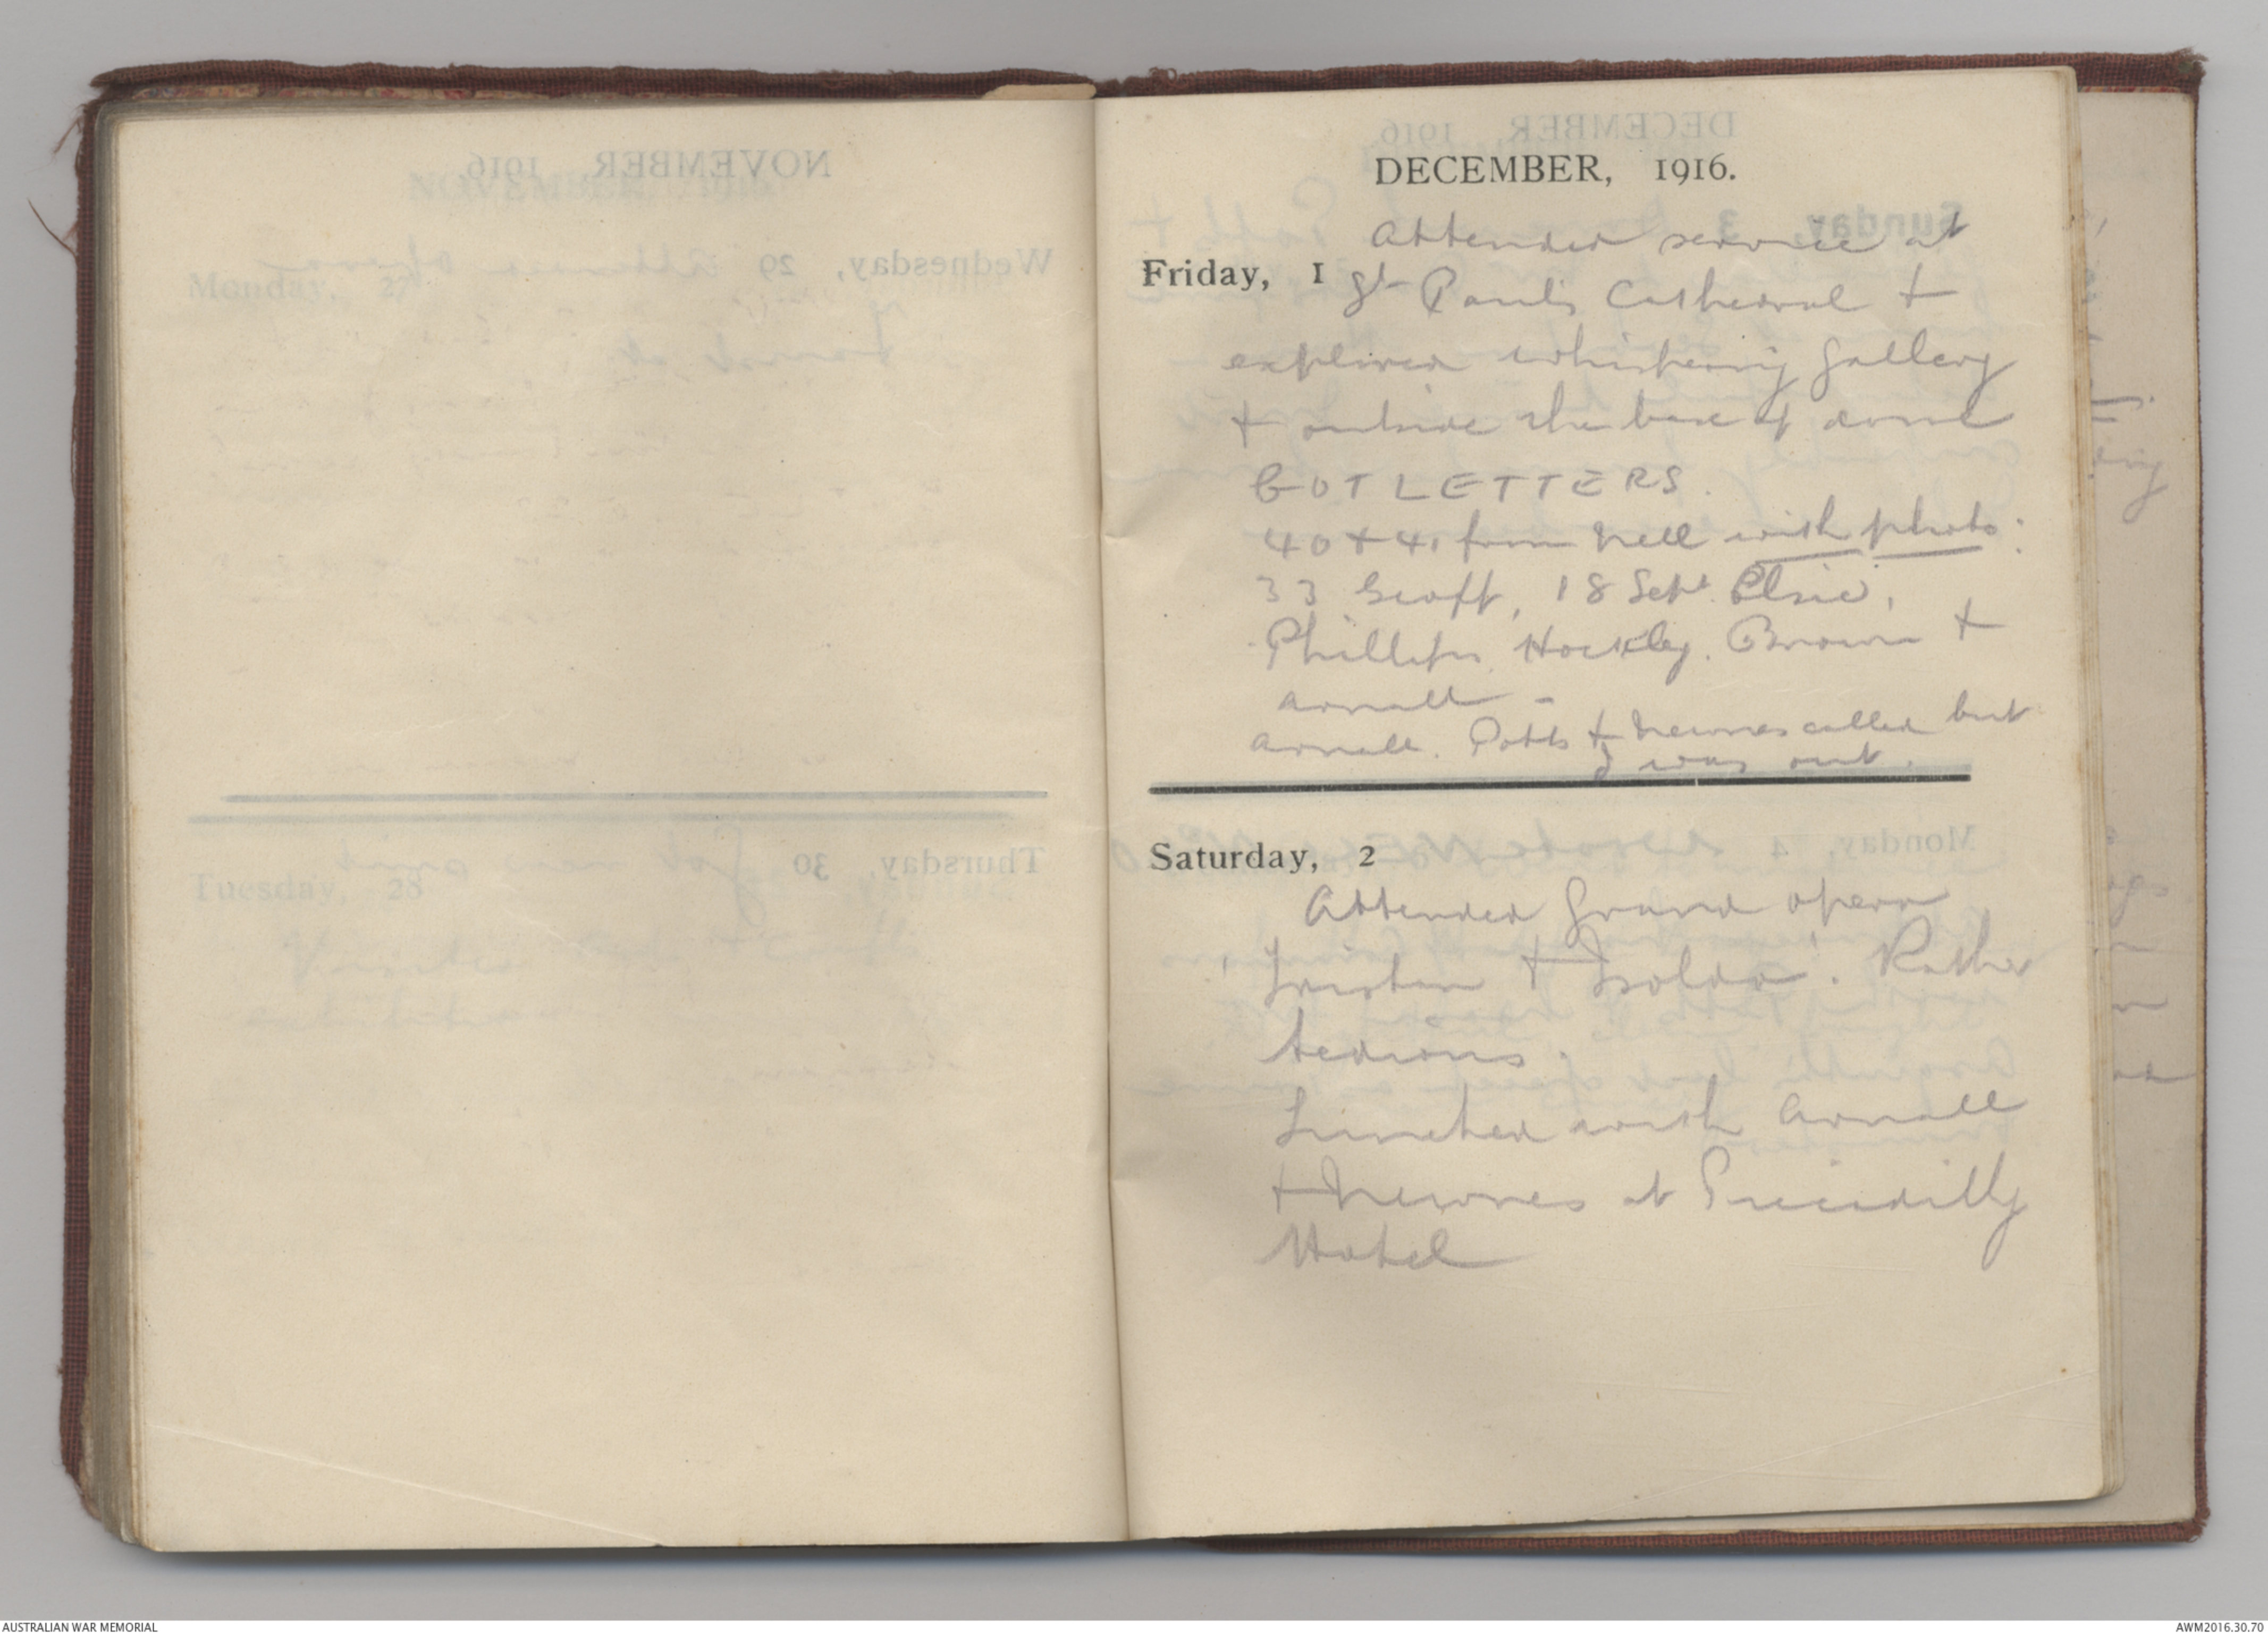 DECEMBER, 1916.
Attended service at
Friday, 1 St Pauls Cathedral +
explored whispering gallery
+ outside the base of dome
GOT LETTERS.
40 + 41 from Nell with photo:
33 Geoff, 18 Sept. Elsie,
Phillips, Hockley. Brown +
Arnall -
Arnall. Potts + Newnes called but
I was out.
Saturday, 2
Attended Grand opera
'Tristan + Isolda'. Rather
tedious.
Lunched with Arnall
+ Newnes at Piccadilly
Hotel
AUSTRALIAN WAR MEMORIAL
AWM2016.30.70